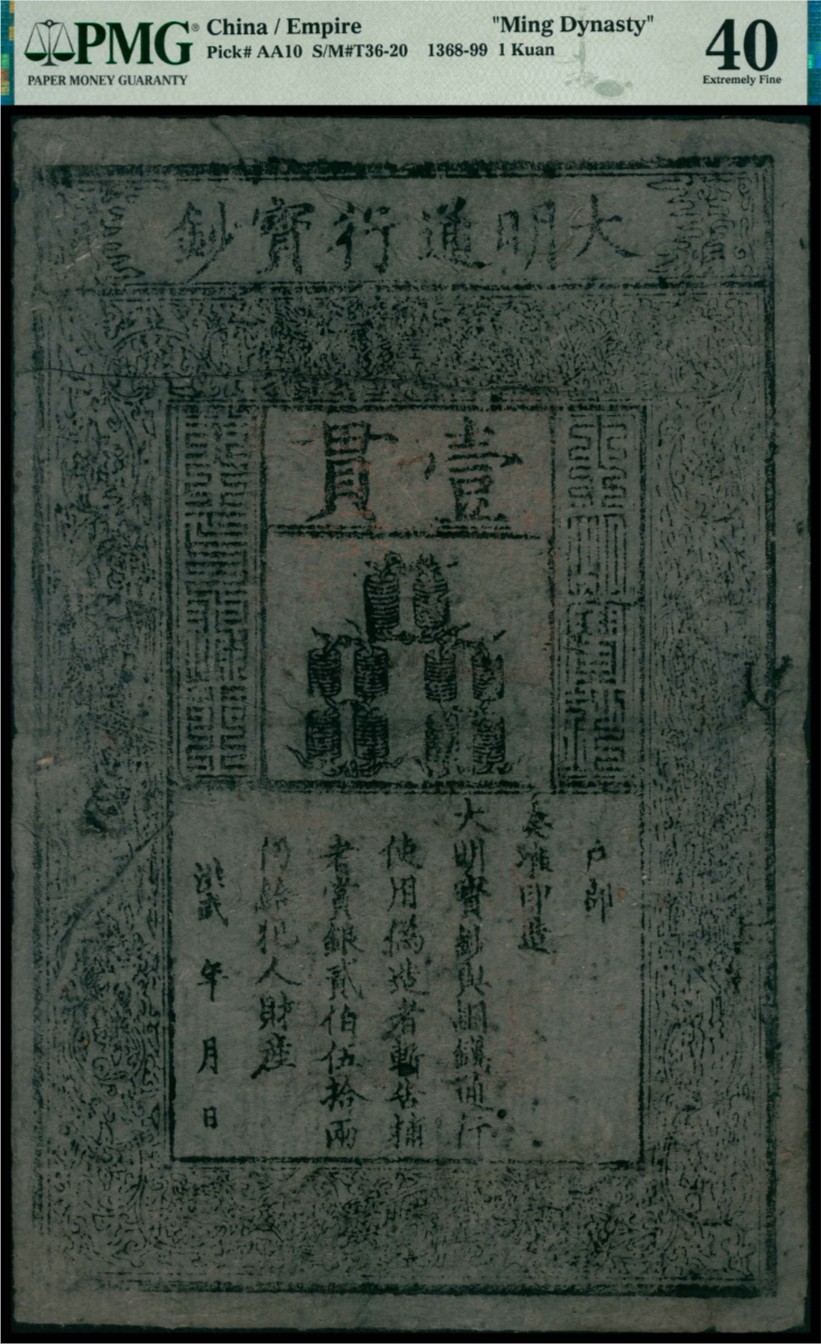 PMG®
PAPER MONEY GUARANTY
China / Empire
"Ming Dynasty"
Pick# AA10 S/M#T36-20 1368-99 1 Kuan
40
Extremely Fine
大明通行寶鈔
壹貫
大明寶鈔
天下通行
戶部
奏准印造
大明寶鈔與銅錢通行
使用偽造者斬告捕
者賞銀貳伯伍拾兩
仍給犯人財產
洪武 年 月 日